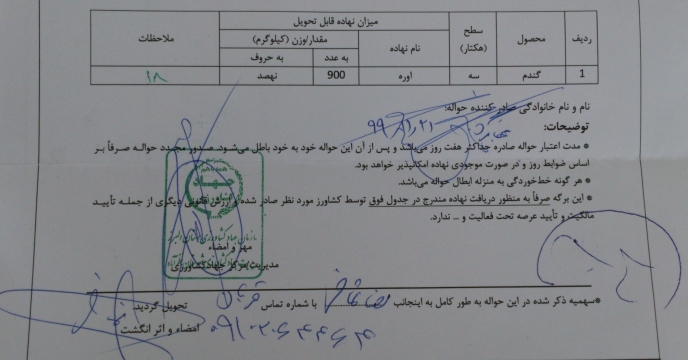 ردیف محصول سطح (هکتار) میزان نهاده قابل تحویل ملاحظات
نام نهاده مقدار/وزن (کیلوگرم)
به عدد به حروف
1 گندم سه اوره 900 نهصد ۱۸
نام و نام خانوادگی صادر کننده حواله:
توضیحات:
* مدت اعتبار حواله صادره حداکثر هفت روز می‌باشد و پس از آن این حواله خود به خود باطل می‌شود. صدور مجدد حواله صرفاً بر
اساس ضوابط روز و در صورت موجودی نهاده امکانپذیر خواهد بود.
* هر گونه خط‌خوردگی به منزله ابطال حواله می‌باشد.
* این برگه صرفاً به منظور دریافت نهاده مندرج در جدول فوق توسط کشاورز مورد نظر صادر شده و ارزش قانونی دیگری از جمله تأیید
مالکیت و تأیید عرصه تحت فعالیت و ... ندارد.
مهر و امضاء
مدیریت/مرکز جهادکشاورزی
*سهمیه ذکر شده در این حواله به طور کامل به اینجانب با شماره تماس تحویل گردید.
امضاء و اثر انگشت